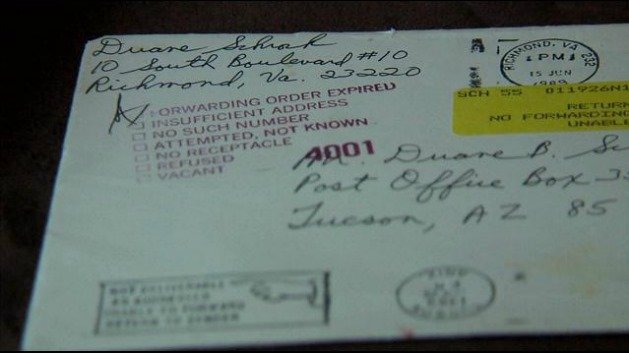 Duane Schrak
10 South Boulevard #10
Richmond, Va. 23220
RICHMOND, VA 232
PM
15 JUN
SCH 55 011926N1
RETURN
NO FORWARDING
UNABL
ORWARDING ORDER EXPIRED
INSUFFICIENT ADDRESS
NO SUCH NUMBER
ATTEMPTED, NOT KNOWN
NO RECEPTACLE
REFUSED
VACANT
A001
Duane B. Sc
Post Office Box
Tucson, AZ 85
NOT DELIVERABLE
AS ADDRESSED
UNABLE TO FORWARD
RETURN TO SENDER